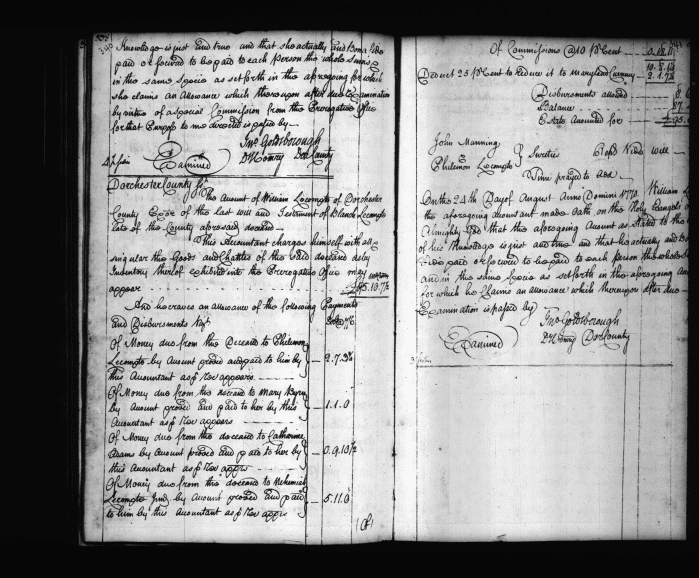 340
Knowledge is just and true and that she actually and Bona Fide
paid or secured to be paid to each person the whole Sums
in the same Specia as set forth in the aforegoing for which
she claims an Allowance which thereupon after due Examination
by virtue of a Special Commission from the Prerogative Office
for that Purpose to me directed is passed by
Jno Goldsborough
Examined
Dy Comry Dor County
Dorchester County Ss
The Amount of William Lecompte of Dorchester
County Exor of the last Will and Testament of Blanch Lecompte
late of the County aforesaid deceased
This Accountant charges himself with all
singular the Goods and Chattles of the said deceased as by
Inventory thereof exhibited into the Prerogative Office may
appear 95.10.7½
And he craves an allowance of the following Payments
and Disbursements Vizt
Of Money due from the Deceased to Philemon
Lecompte by Amount proved and paid to him by
this Accountant as p Rec appears 2.7.3¾
Of Money due from the deceased to Mary
by Amount proved and paid to her by this
Accountant as p Rec appears 1.1.0
Of Money due from the deceased to Catharine
Adams by Amount proved and paid to her by
this Accountant as p Rec apprs 0.9.10½
Of Money due from the deceased to Nehemiah
Lecompte Junr by Amount proved and paid
to him by this Accountant as p Rec apprs 5.11.0
Of
341
Of Commissions @ 10 p Cent 0.18.11
10.8.
Deduct 25 p Cent to reduce it to Maryland Currency 2.1.7
Disbursements allowed 8
Balance 87
Estate Amounted for 95
John Manning
Philemon Lecompte } Sureties Repd Vide will
Time prayed to add
On the 24th Day of August Anno Domini 1770 William
the aforegoing accountant made Oath on the Holy Evangels of
Almighty God that the aforegoing Account as stated to the
of his Knowledge is just and true and that he actually and B
Fide paid or secured to be paid to each person the whole S
and in the same Specia as set forth in the aforegoing
for which he Claims an allowance which thereupon after due
Examination is passed by
Jno Goldsborough
Examined
Dy Comry Dor County